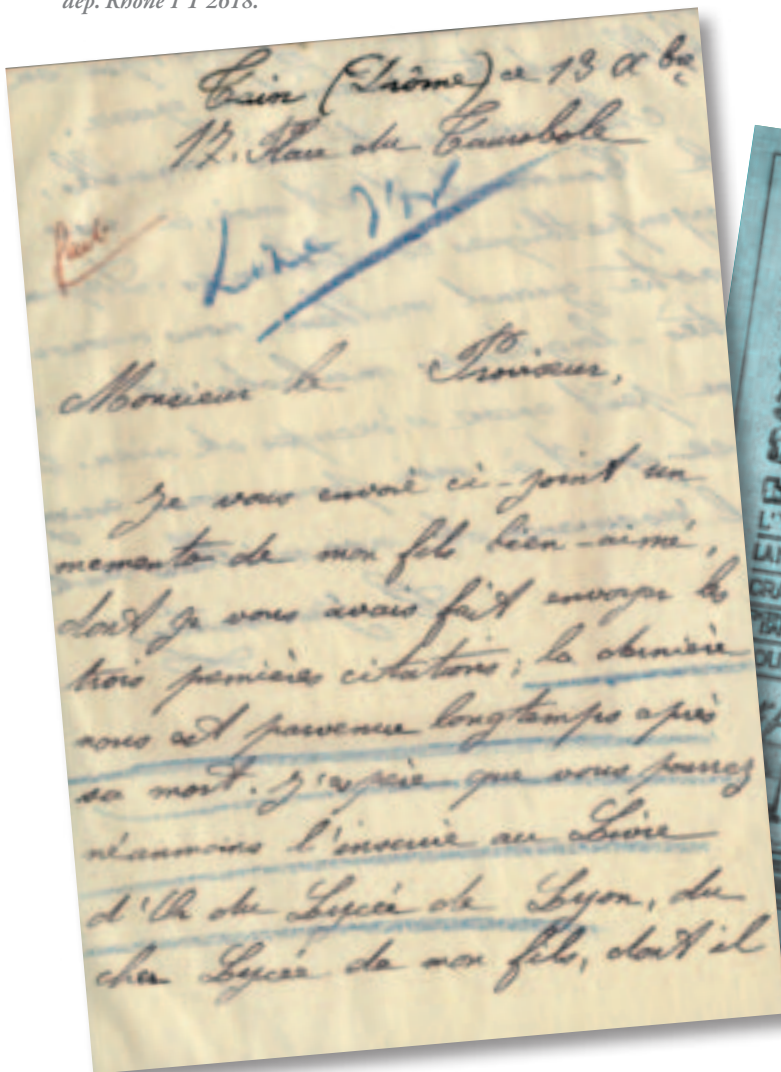 dép. Rhône 1 T 2618.
Tain (Drôme) ce 13 Xbre
17. Place du Taurobole
Livre d'or
Monsieur le Proviseur,
Je vous envoie ci-joint un
memento de mon fils bien-aimé,
dont je vous avais fait envoyer les
trois premières citations; la dernière
nous est parvenue longtemps après
sa mort. J'espère que vous pourrez
néanmoins l'inscrire au Livre
d'Or du Lycée de Lyon, du
cher Lycée de mon fils, dont il